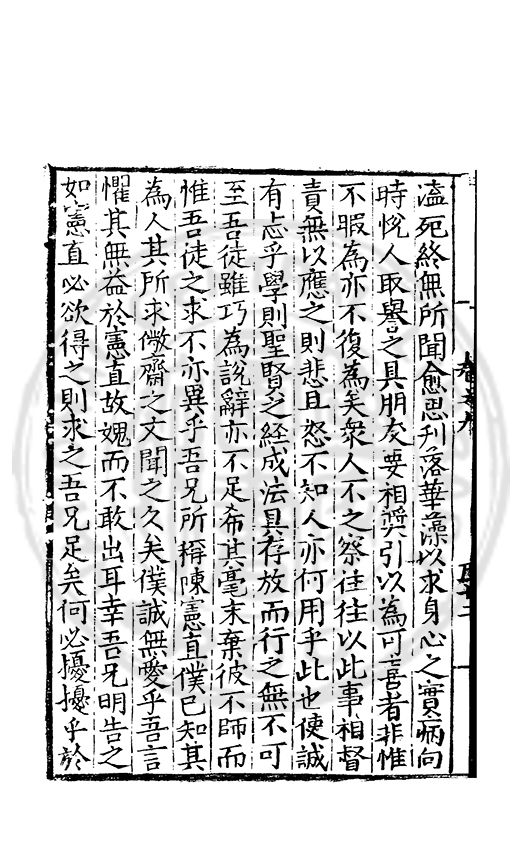 溘死終無所聞愈思刋落華藻以求身心之實病向
時悅人取譽之具朋友要相奬引以為可喜者非惟
不暇為亦不復為矣衆人不之察往往以此事相督
責無以應之則悲且怒不知人亦何用乎此也使誠
有志乎學則聖賢之經成法具存放而行之無不可
至吾徒雖巧為說辭亦不足希其毫末棄彼不師而
惟吾徒之求不亦異乎吾兄所稱陳憲直僕已知其
為人其所求儆齋之文聞之久矣僕誠無愛乎吾言
懼其無益於憲直故媿而不敢出耳幸吾兄明告之
如憲直必欲得之則求之吾兄足矣何必擾擾乎於